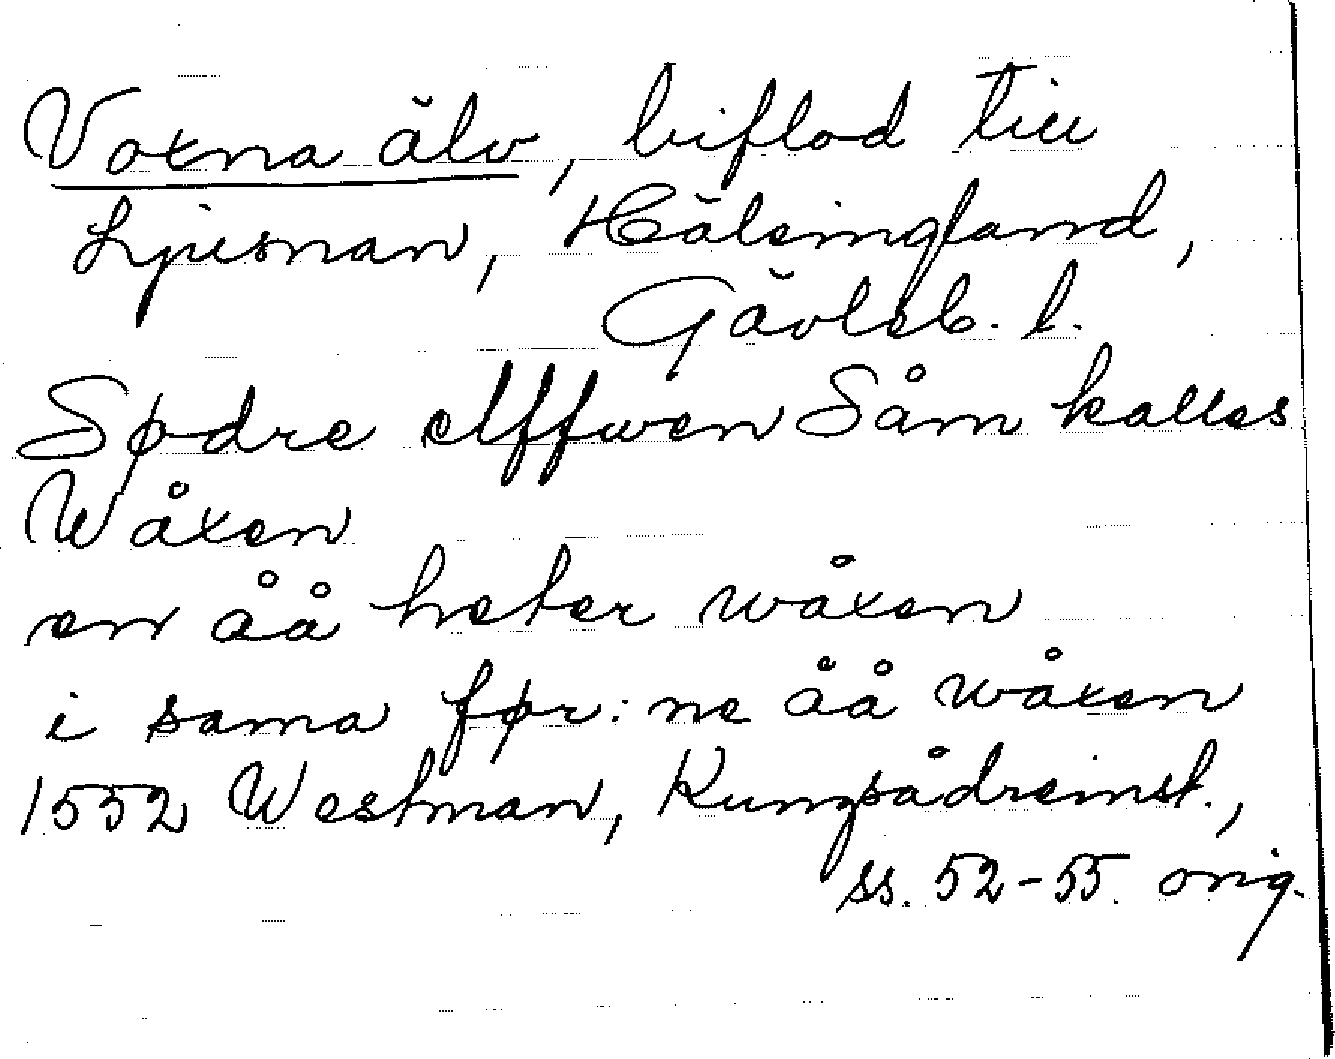 Voxna älv, biflod till
Ljusnan, Hälsingland,
Gävleb. l.
Sødre elffwen Såm kalles
Wåxen
en åå heter wåxen
i sama før:ne åå wåxen
1552 Westman, Kungsådreinst.,
ss. 52-55. orig.